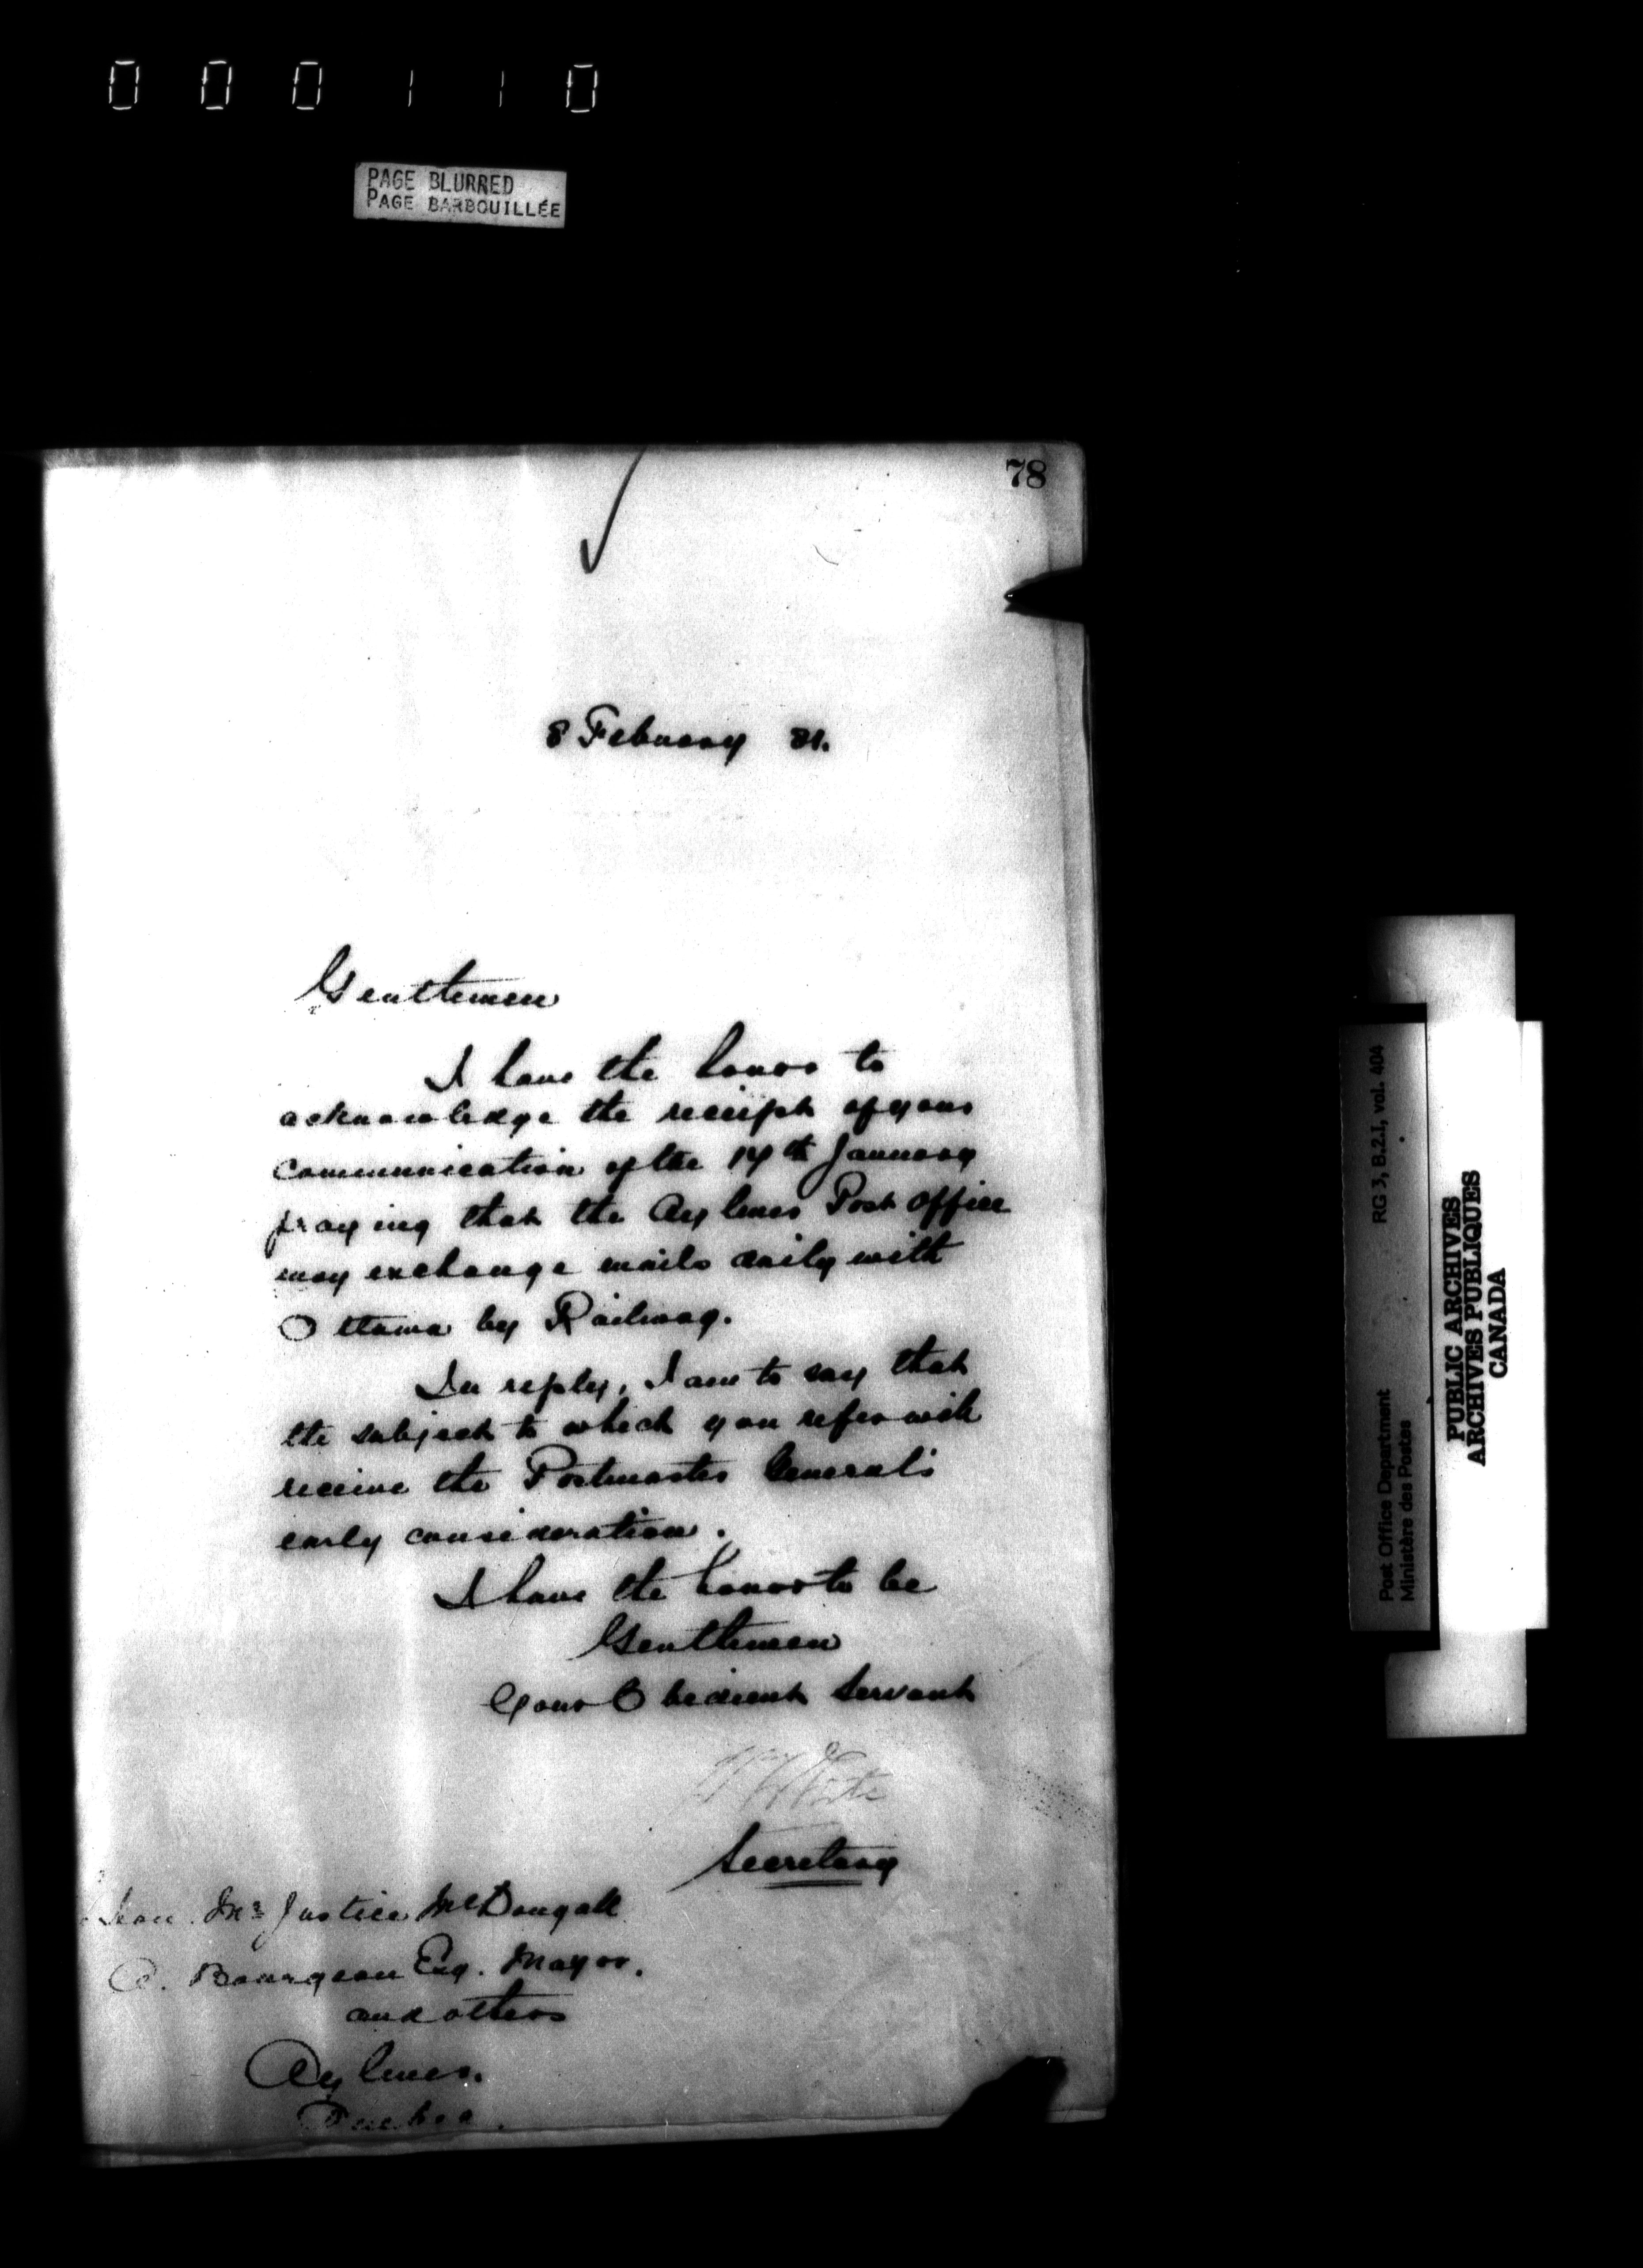 000110
PAGE BLURRED
PAGE BARBOUILLÉE
78
8 February 81.
Gentlemen
I have the honor to
acknowledge the receipt of your
communication of the 14th January
praying that the Aylmer Post Office
may exchange mails daily with
Ottawa by Railway.
In reply, I am to say that
the subject to which you refer will
receive the Postmaster General's
early consideration.
I have the honor to be
Gentlemen
Your Obedient Servant
White
Secretary
Hon. Mr Justice McDougall
Bourgeau Esq. Mayor.
and others
Aylmer.
Quebec.
Post Office Department RG 3, B.2.I, vol. 404
Ministère des Postes
PUBLIC ARCHIVES
ARCHIVES PUBLIQUES
CANADA